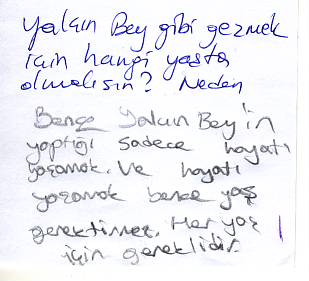 Yalçın Bey gibi gezmek
için hangi yaşta
olmalısın? Neden
Bence Yalçın Bey'in
yaptığı sadece hayatı
yaşamak. Ve hayatı
yaşamak bence yaş
gerektirmez. Her yaş
için gereklidir.